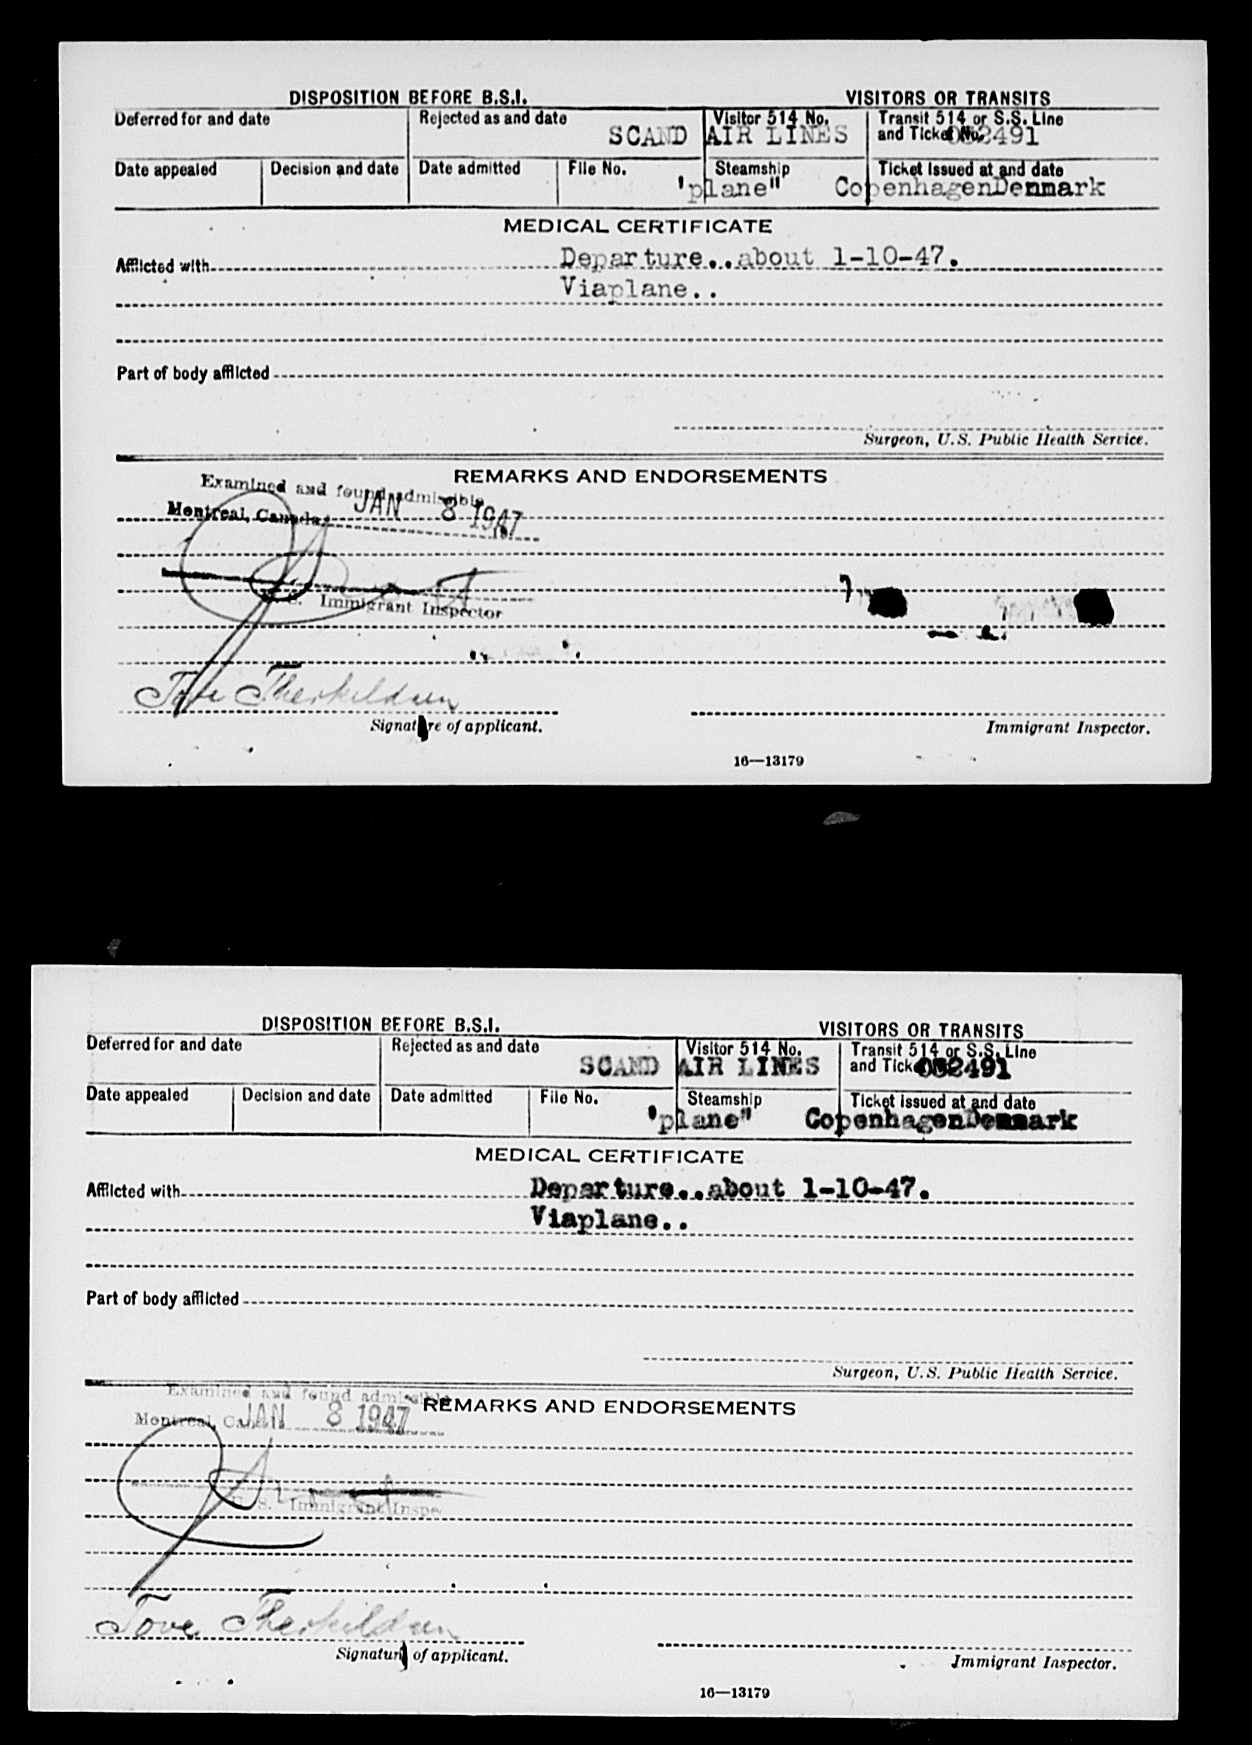 DISPOSITION BEFORE B.S.I. VISITORS OR TRANSITS
Deferred for and date Rejected as and date Visitor 514 No. Transit 514 or S.S. Line
and Ticket No. 032491
SCAND AIR LINES
Date appealed Decision and date Date admitted File No. Steamship Ticket issued at and date
"plane" CopenhagenDenmark
MEDICAL CERTIFICATE
Afflicted with Departure..about 1-10-47.
Viaplane..
Part of body afflicted
Surgeon, U.S. Public Health Service.
REMARKS AND ENDORSEMENTS
Examined and found admissible
Montreal, Canada, JAN 8 1947
U.S. Immigrant Inspector
Tove Therkildsen
Signature of applicant. Immigrant Inspector.
16—13179
DISPOSITION BEFORE B.S.I. VISITORS OR TRANSITS
Deferred for and date Rejected as and date Visitor 514 No. Transit 514 or S.S. Line
and Ticket 032491
SCAND AIR LINES
Date appealed Decision and date Date admitted File No. Steamship Ticket issued at and date
"plane" CopenhagenDenmark
MEDICAL CERTIFICATE
Afflicted with Departure..about 1-10-47.
Viaplane..
Part of body afflicted
Surgeon, U.S. Public Health Service.
Examined and found admissible
REMARKS AND ENDORSEMENTS
Montreal, Canada JAN 8 1947
U.S. Immigrant Inspe
Tove Therkildsen
Signature of applicant. Immigrant Inspector.
16—13179